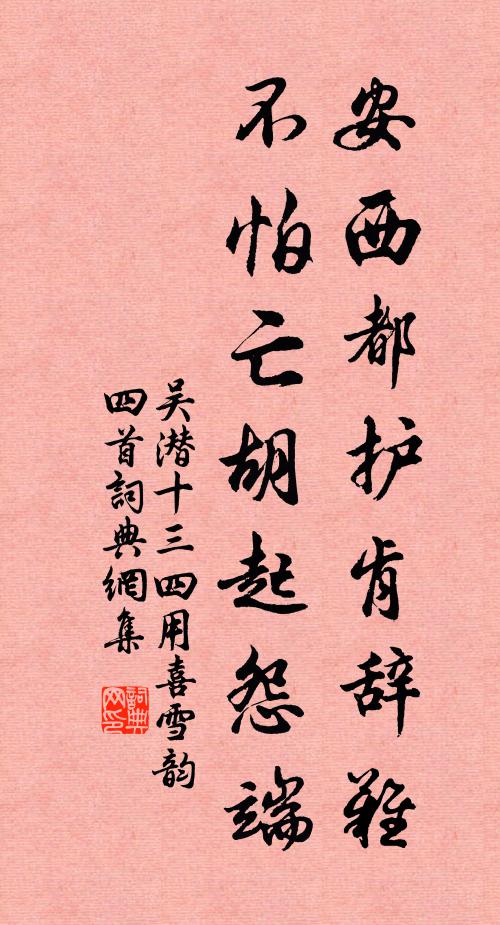 安西都护肯辞难
不怕亡胡起怨端
吴潜十三四用喜雪韵
四首詞典網集
詞典网印